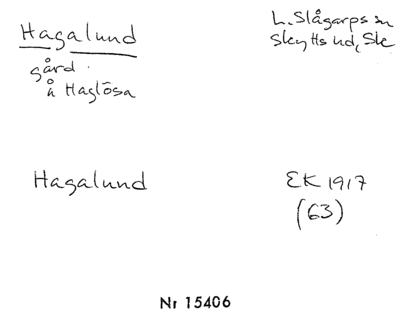 Hagalund
L. Slågarps sn
Skytts hd, Sk
gård
å Haglösa
Hagalund
EK 1917
(63)
Nr 15406